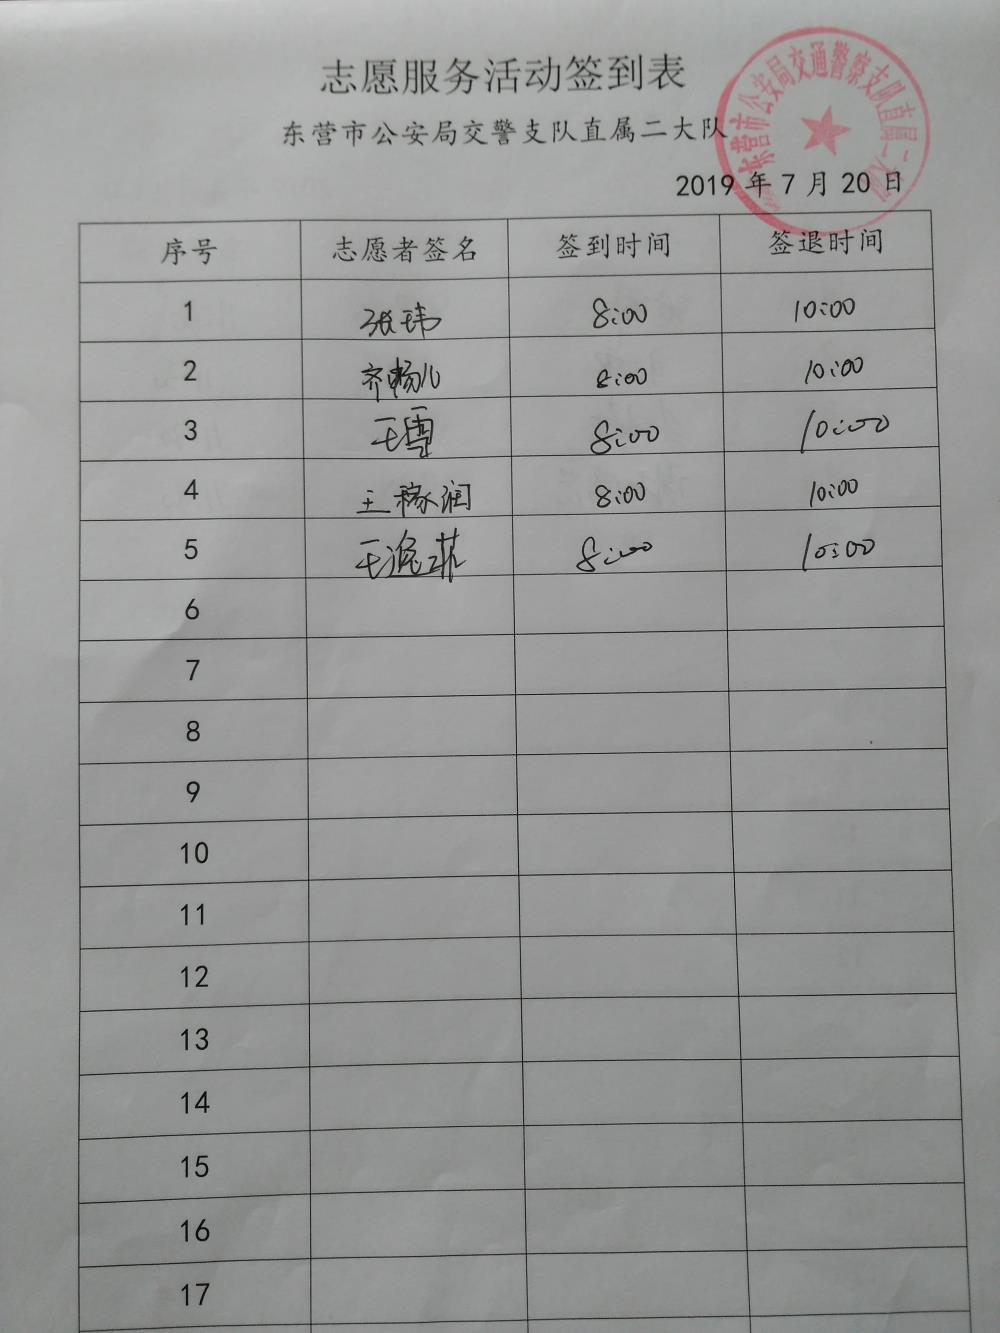 志愿服务活动签到表
东营市公安局交警支队直属二大队
东营市公安局交通警察支队直属二大队
2019 年 7 月 20 日
序号 志愿者签名 签到时间 签退时间
1 张玮 8:00 10:00
2 齐畅儿 8:00 10:00
3 王雪 8:00 10:00
4 王稼润 8:00 10:00
5 王逸菲 8:00 10:00
6
7
8
9
10
11
12
13
14
15
16
17